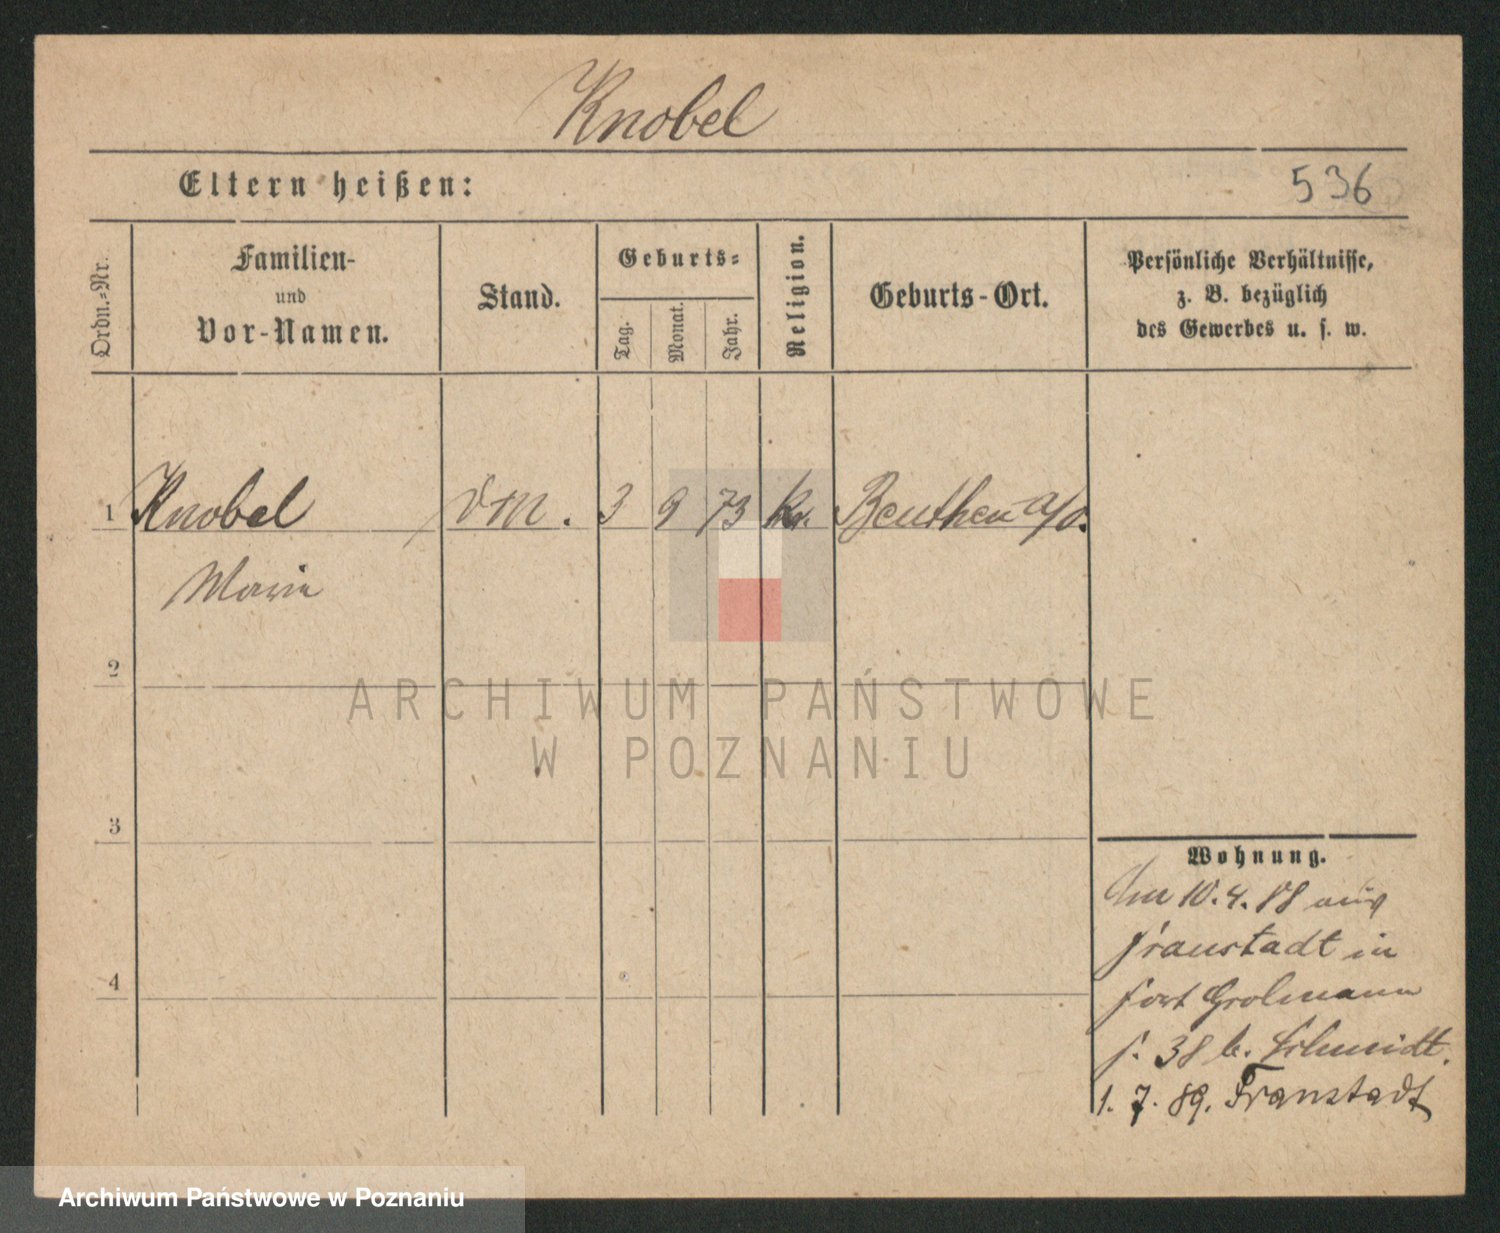 Knobel
Eltern heißen:
536
Ordn.=Nr.
Familien-
und
Vor-Namen.
Stand.
Geburts=
Tag.
Monat.
Jahr.
Religion.
Geburts-Ort.
Persönliche Verhältnisse,
z. B. bezüglich
des Gewerbes u. s. w.
1 Knobel 3 9 73 Beuthen a/O.
Marie
2
ARCHIWUM PAŃSTWOWE
W POZNANIU
3
Wohnung.
10.4.88 aus
Fraustadt in
fort Grolmann
38 b. Schmidt.
1. 7. 89. Fraustadt
4
Archiwum Państwowe w Poznaniu